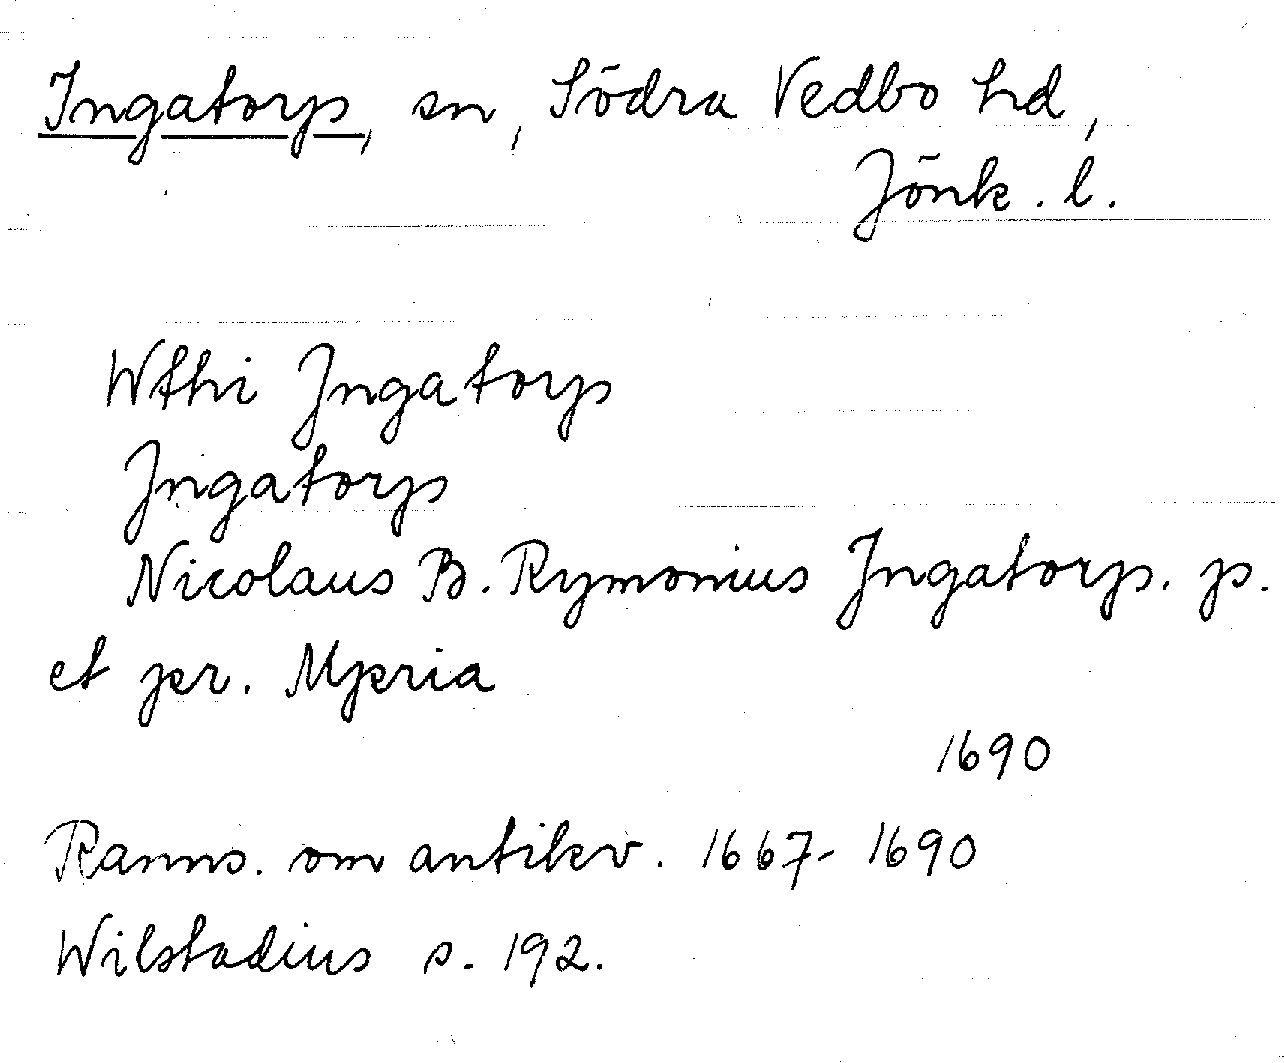 Ingatorp, sn, Södra Vedbo hd,
Jönk. l.
Wthi Jngatorp
Jngatorp
Nicolaus B. Rymonius Jngatorp. p.
et pr. Mpria
1690
Ranns. om antikv. 1667-1690
Wilstadius s. 192.